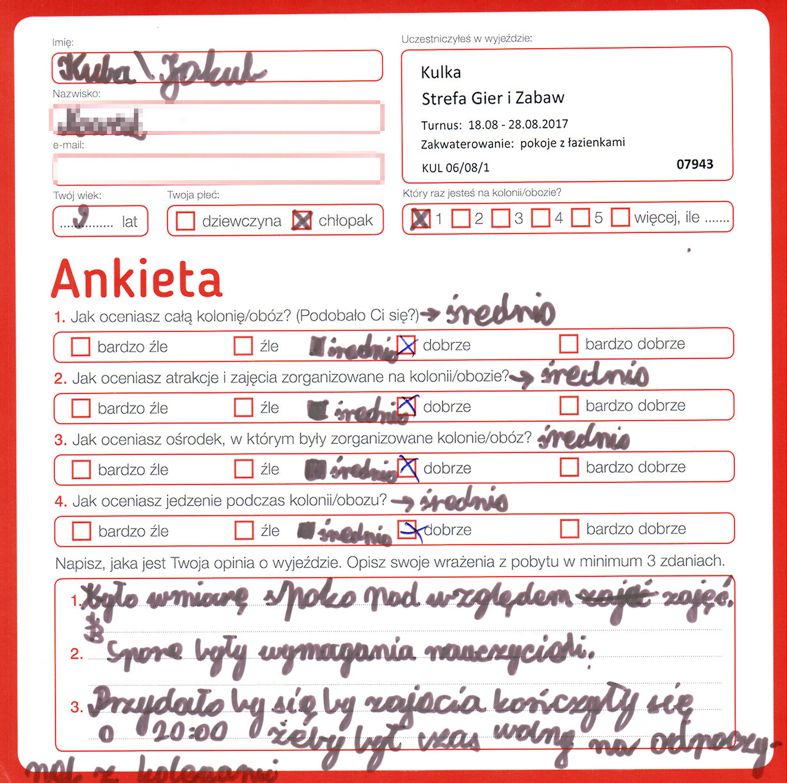 Imię:
Kuba \ Jakub
Uczestniczyłeś w wyjeździe:
Kulka
Strefa Gier i Zabaw
Turnus: 18.08 - 28.08.2017
Zakwaterowanie: pokoje z łazienkami
KUL 06/08/1 07943
Nazwisko:
e-mail:
Twój wiek:
9 lat
Twoja płeć:
dziewczyna chłopak
Który raz jesteś na kolonii/obozie?
1 2 3 4 5 więcej, ile .......
Ankieta
1. Jak oceniasz całą kolonię/obóz? (Podobało Ci się?) → średnio
bardzo źle źle średnio dobrze bardzo dobrze
2. Jak oceniasz atrakcje i zajęcia zorganizowane na kolonii/obozie? → średnio
bardzo źle źle średnio dobrze bardzo dobrze
3. Jak oceniasz ośrodek, w którym były zorganizowane kolonie/obóz? średnio
bardzo źle źle średnio dobrze bardzo dobrze
4. Jak oceniasz jedzenie podczas kolonii/obozu? → średnio
bardzo źle źle średnio dobrze bardzo dobrze
Napisz, jaka jest Twoja opinia o wyjeździe. Opisz swoje wrażenia z pobytu w minimum 3 zdaniach.
1. Było wmiarę spoko pod względem zajęć.
2. Spore były wymagania nauczycieli.
3. Przydało by się by zajęcia kończyły się
o 20:00 żeby był czas wolny na odpoczy-
nek z kolegami